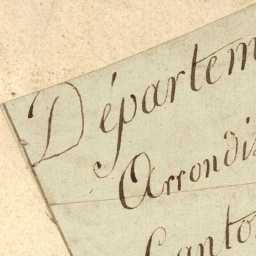 Départem
Arrondis
Canton